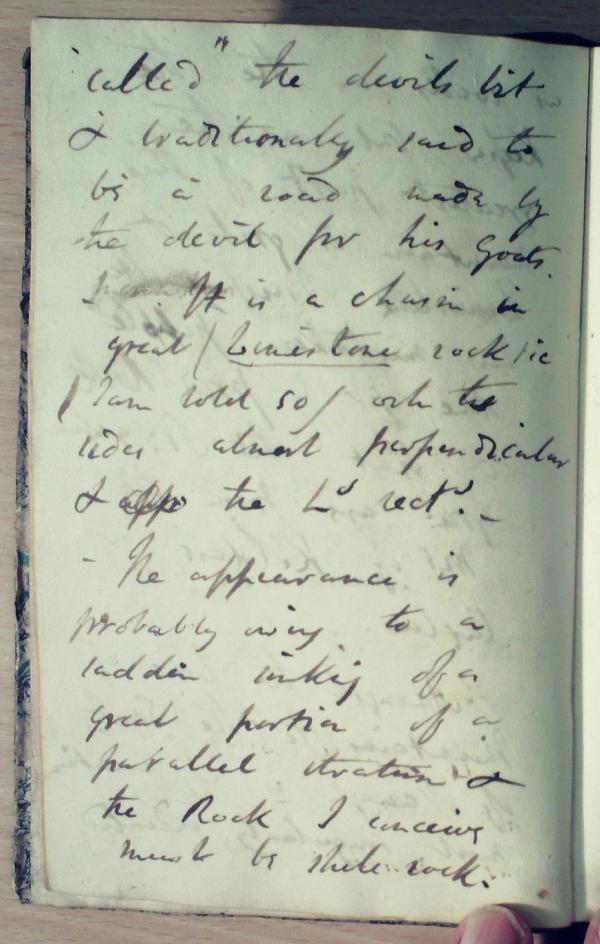 called " the devils bit
& traditionally said to
be a road made by
the devil for his Goats.
It is a chasm in
great / Limestone rock /ie
I am told so / wh the
sides almost perpendicular
& the
- The appearance is
probably owing to a
sudden sinking of a
great portion of a
parallel stratum &
the Rock I conceive
must be rock.